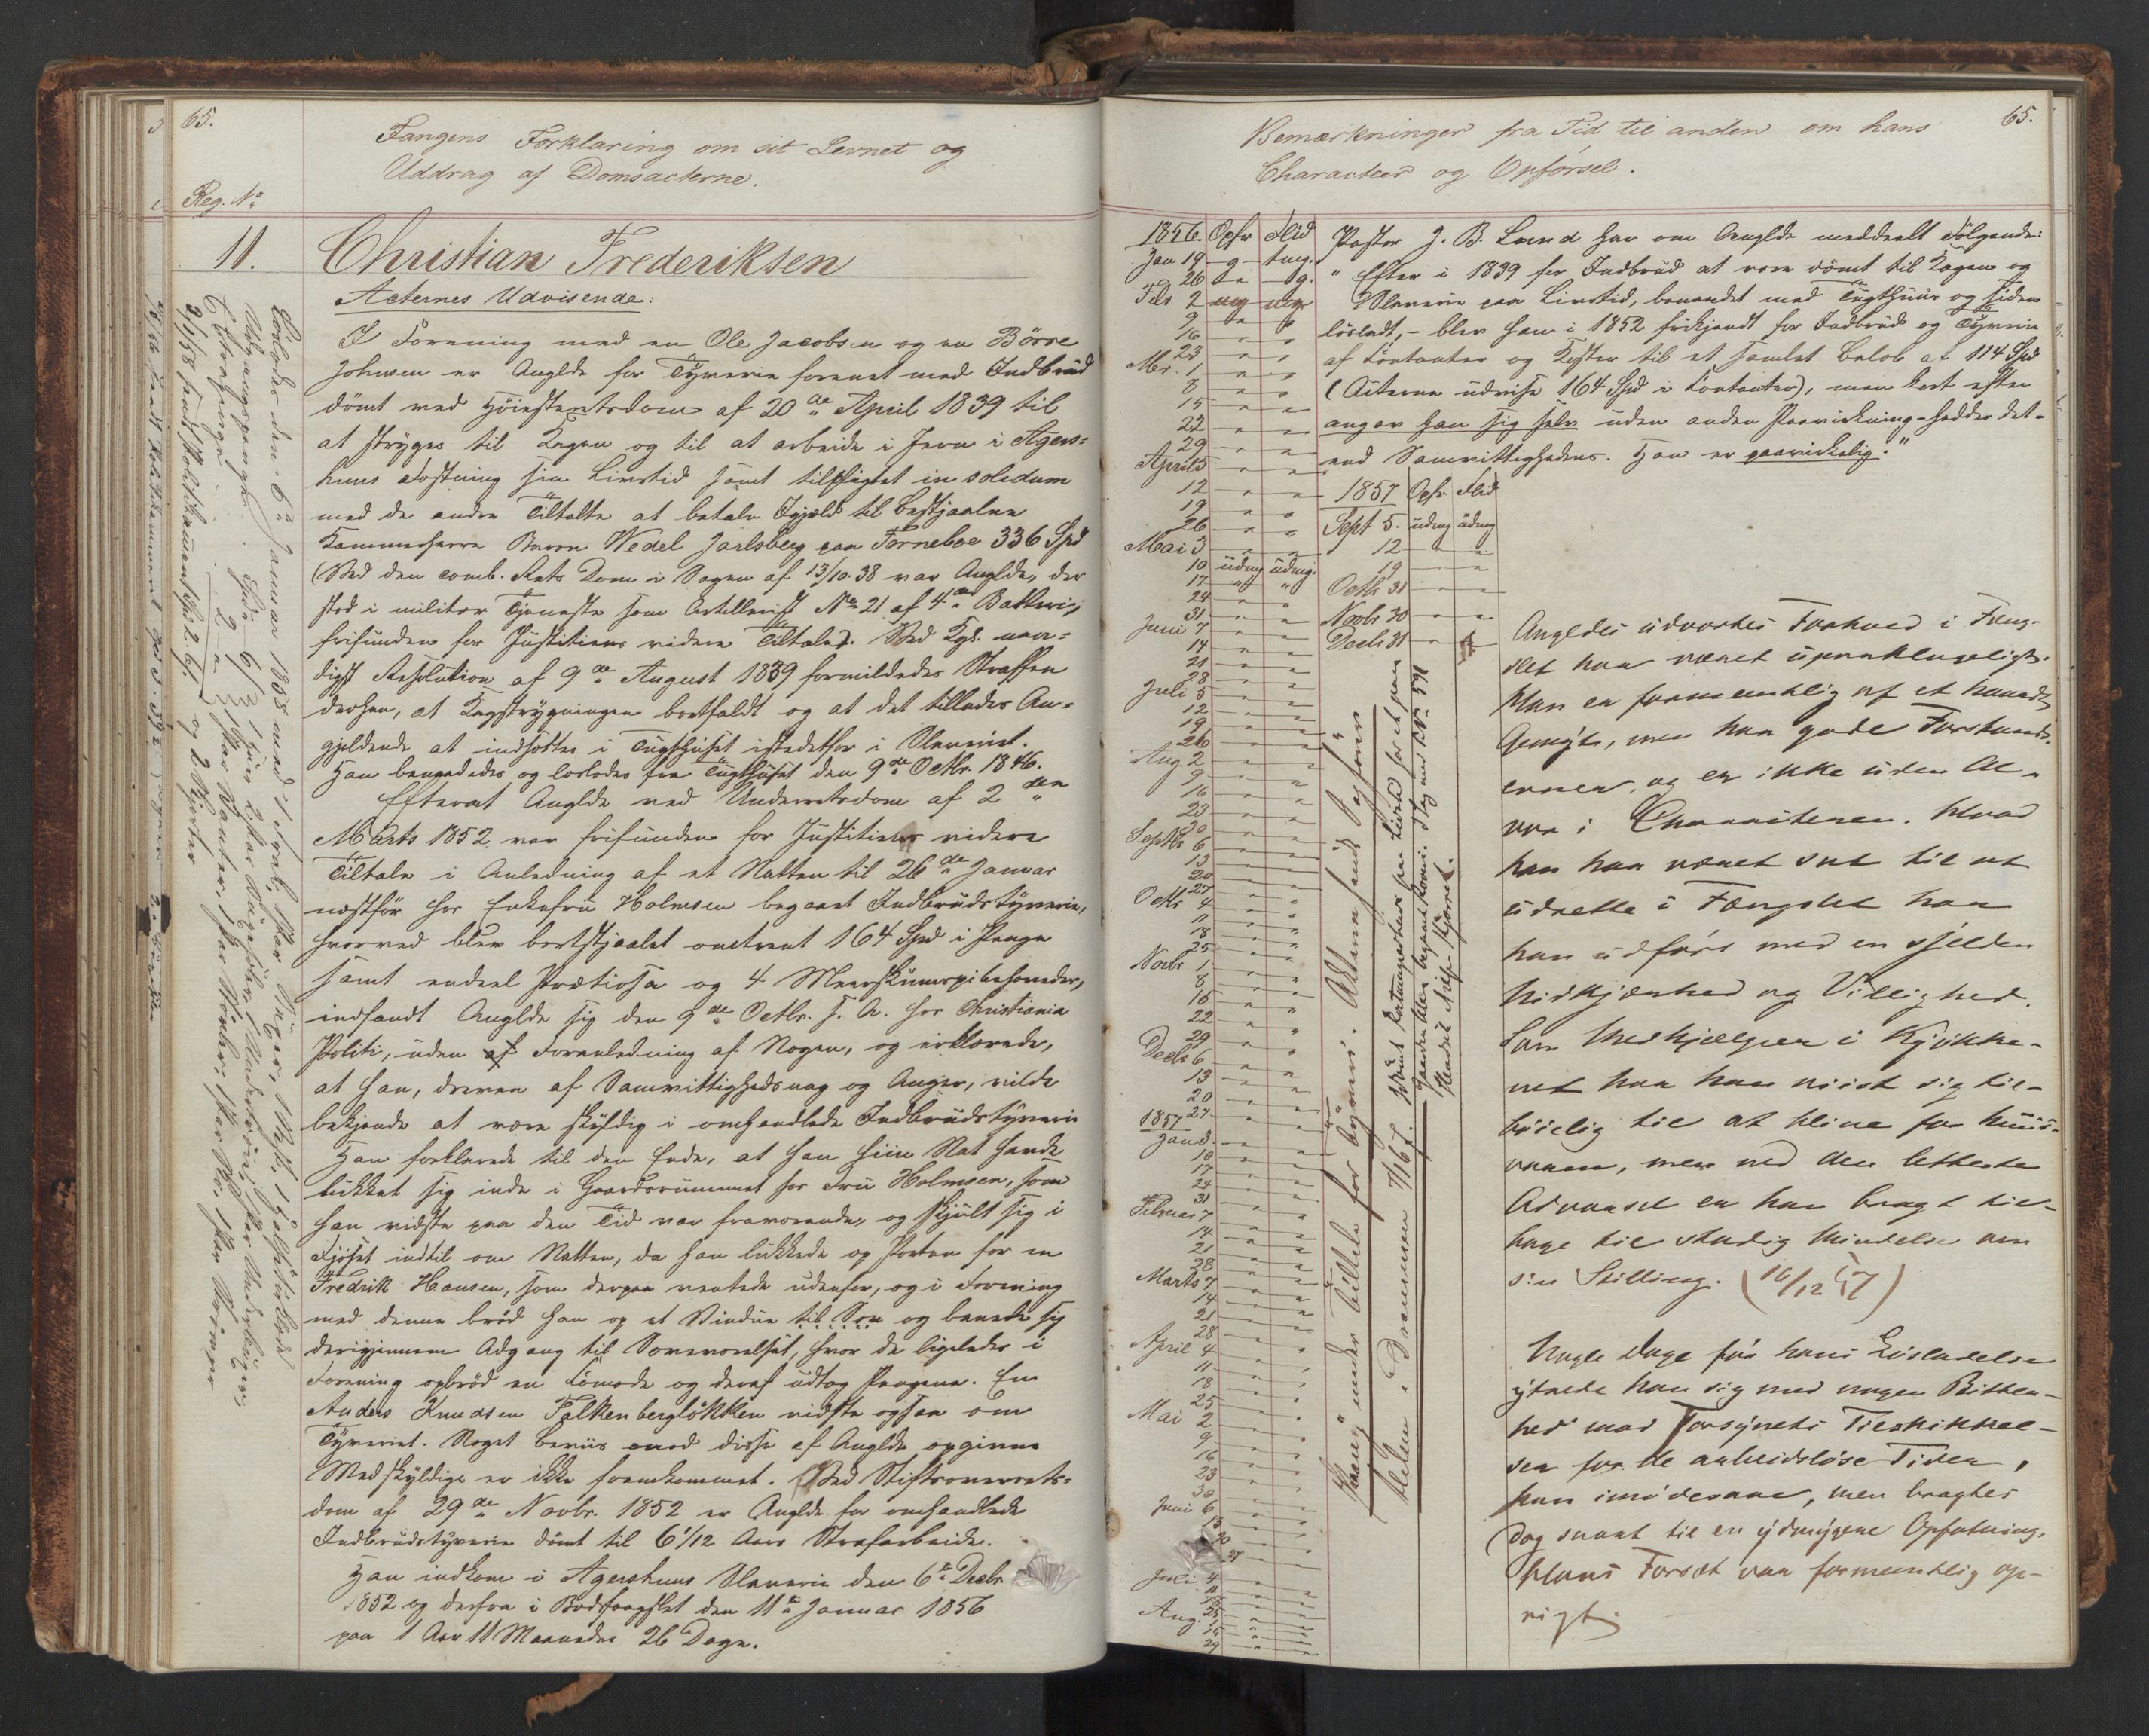 65.
Fangens Forklaring om sit Levnet og
Uddrag af Domsacterne.
Reg. No
11. Christian Frederiksen
Acternes Udvisende:
I Forening med en Ole Jacobsen og en Börre
Johnsen er Anglde for Tyverie forenet med Indbrud
dömt ved Höiesteretsdom af 20de April 1839 til
at stryges til Kagen og til at arbeide i Jern i Agers-
huus Fæstning sin Livstid samt tilpligtet in solidum
med de andre Tiltalte at betale Igjæld til Bestjaalne
Kammerherre Baron Wedel Jarlsberg paa Fornebo 336 Spd
(Ved den comb. Rets Dom i Sagen af 13/10.38 var Anglde, der
stod i militær Tjeneste som Artillerist No 21 af 4de Batterie,
frifunden for Justitiens videre Tiltale). Ved Kgl. naa-
digst Resolution af 9de August 1839 formildedes Straffen
derhen, at Kagstrygningen bortfaldt og at det tillodes An-
gjeldende at indsættes i Tugthuset istedetfor i Slaveriet.
Han benaadedes og løslodes fra Tugthuset den 9de Octbr. 1846.
Efterat Anglde ved Underretsdom af 2den
Marts 1852 var frifunden for Justitiens videre
Tiltale i Anledning af et Natten til 26de Januar
næstför hos Enkefru Holmsen begaaet Indbrudstyverie,
hvorved blev bortstjaalet omtrent 164 Spd i Penge
samt endeel Prætiosa og 4 Meerskumspibehoveder,
indfandt Anglde sig den 9de Octbr. s. A. hos Christiania
Politi, uden af Foranledning af Nogen, og erklærede,
at han, dreven af Samvittighedsnag og Anger, vilde
bekjende at være skyldig i omhandlede Indbrudstyverie
Han forklarede til den Ende, at han hiin Nat havde
lukket sig inde i Gaardsrummet hos Fru Holmsen, som
han vidste paa den Tid var fraværende, og skjult sig i
Fjöset indtil om Natten, da han lukkede op Porten for en
Fredrik Hansen, som derpaa ventede udenfor, og i Forening
med denne bröd han op et Vindue til Son og banede sig
derigjennem Adgang til Soveværelset, hvor de ligeledes i
Forening opbröd en Comode og deraf udtog Pengene. En
Anders Knudsen Falkenberglökken vidste ogsaa om
Tyveriet. Noget Beviis mod disse af Anglde opgivne
Medskyldige er ikke fremkommet. Ved Stiftsoverrets-
dom af 29de Novbr. 1852 er Anglde for omhandlede
Indbrudstyverie dömt til 6 1/12 Aars Strafarbeide.
Han indkom i Agershuus Slaverie den 6te Decbr
1852 og derfra i Bodsfængslet den 11te Januar 1856
paa 1 Aar 11 Maaneder 26 Dage.
Löslodes den 6te Januar 1858 med 1 Frak,
65.
Bemærkninger fra Tid til anden om hans
Characteer og Opförsel.
1856. Opfr Flid
Jan 19
26
Feb 2
9
16
23
Mts. 1
8
15
22
29
April 5
12
19
26
Mai 3
10 udmg udmg.
17
24
31
Juni 7
14
21
28
Juli 5
12
19
26
Aug. 2
9
16
23
30
Septbr 6
13
20
27
Octbr 4
11
18
25
Novbr 1
8
15
22
29
Decbr 6
13
20
27
1857
Jan 3
10
17
24
31
Februar 7
14
21
28
Marts 7
14
21
28
April 4
11
18
25
Mai 2
9
16
23
30
Juni 6
13
20
27
Juli 4
11
18
25
Aug. 1
15
29
Pastor J. B. Lund har om Anglde meddeelt Fölgende:
"Efter i 1839 for Indbrud at være dömt til Kagen og
Slaverie paa Livstid, benaadet med Tugthuus og siden
lösladt, – blev han i 1852 frikjendt for Indbrud og Tyverie
af Contanter og Koster til et samlet Belöb af 114 Spd
(Acterne udvise 164 Spd i Contanter), men kort efter
angav han sig selv uden anden Paavirkning – hedder det –
end Samvittighedens. Han er paavirkelig."
1857 Opfr Flid
Sept 5. udmg udmg
12
19
Octbr 31
Novbr 30
Decb 31
Angldes udvortes Forhold i Fæng-
slet har været upaaklageligt.
Han er formeentlig af et haardt
Gemyt, men har gode Forstands-
evner, og er ikke uden Al-
vor i Characteren. Hvad
han har været sat til at
udrette i Fængslet har
han udført med en sjelden
Nidkjærhed og Villighed.
Som Medhjelper i Kjøkke-
net har han viist sig til-
böielig til at blive for
men ved den letteste
Advarsel er han bragt til-
bage til stadig Mindelse om
sin Stilling. (16/12 57)
Nogle Dage før hans Løsladelse
yttrede han sig med nogen Bitter-
hed mod Forsynets Tilskikkel-
ser for de arbeidsløse Tider,
han imødesaae, men bragtes
dog snart til en ydmygere Opfatning.
Hans Forsæt var formeentlig op-
rigt.